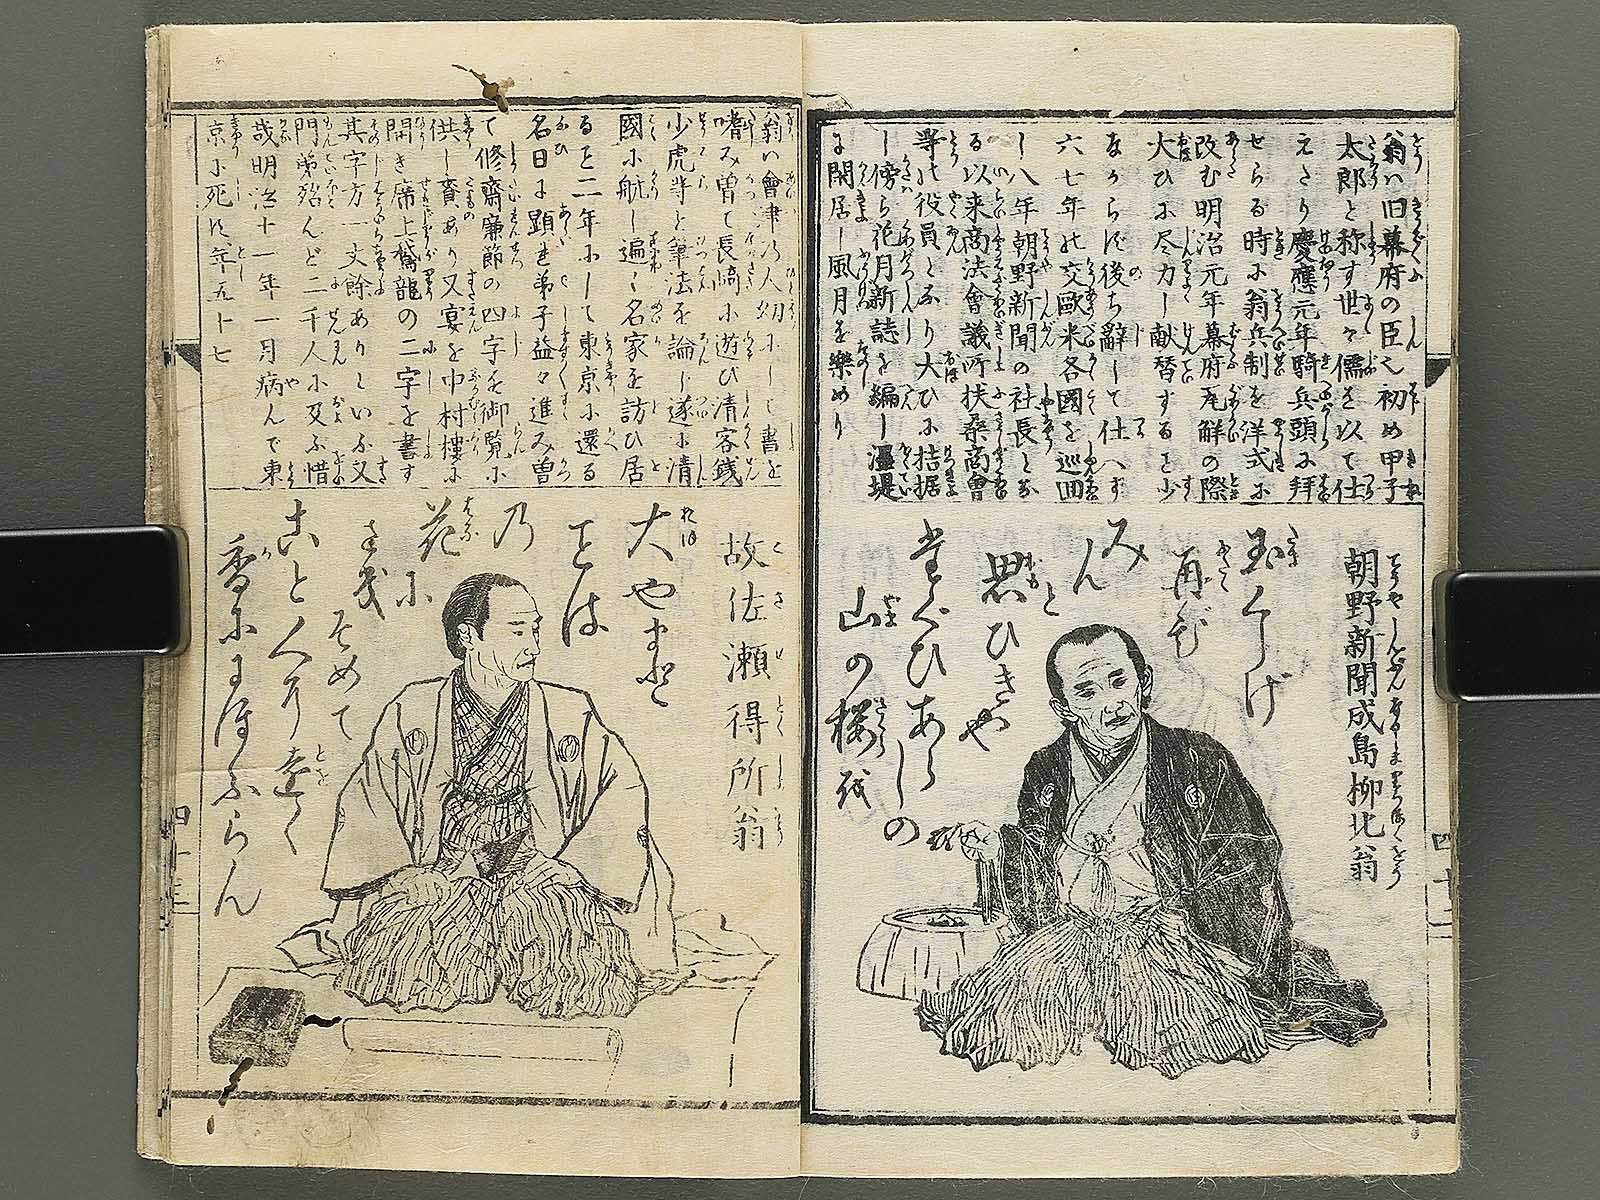 翁ハ旧幕府の臣也初め甲子
太郎と称す世々儒を以て仕
えたり慶應元年騎兵頭に拜
せらる時に翁兵制を洋式に
改む明治元年幕府瓦解の際
大ひに尽力し献替すること少
なからず後ち辞して仕へず
六七年の交歐米各國を巡回
し八年朝野新聞の社長とな
る以来商法會議所扶桑商會
等の役員となり大ひに拮据
し傍ら花月新誌を編し濹堤
に閑居し風月を樂めり
朝野新聞成島柳北翁
玉くしげ
再び
みん
と
思ひきや
山の桜
翁ハ會津の人幼にして書を
嗜み曽て長﨑に遊び清客銭
少虎等と筆法を論じ遂に清
國に航し遍く名家を訪ひ居
ること二年にして東京に還る
名日に顕れ弟子益々進み曽
て修齋廉節の四字を御覧に
供し賚あり又宴を中村樓に
開き席上鵞龍の二字を書す
其字方一丈餘ありといふ又
門弟殆んど二千人に及ふ惜
哉明治十一年一月病んで東
京に死す年五十七
故佐瀬得所翁
大やまと
ことは
乃
花に
そめて
こと人
遠く
香に
にほふらん
四十三